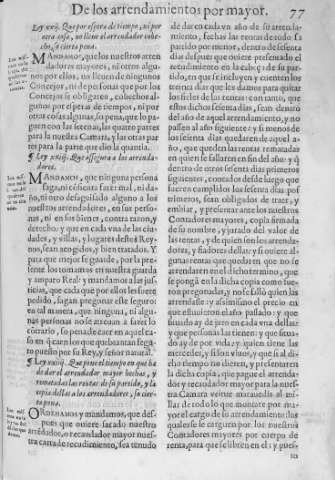 De los arrendamientos por mayor. 77
Ley xxij. Que por espera de tiempo, ni por
otra cosa, no lleue el arrendador cohe-
cho, so cierta pena.
MANDAMOS, que los nuestros arren
dadores mayores, ni otros algu-
nos por ellos, no lleuen de ningunos
Concejos, ni de personas que por los
Concejos se obligaren, cohechos al-
gunos por espera de tiempos, ni por
otras cosas algunas, so pena, que lo pa-
guen con las setenas, las quatro partes
para la nuestra Camara, y las otras par
tes para la parte que dio la quantia.
Ley xxiij. Que assegura a los arrenda-
dores.
MANDAMOS, que ninguna persona
faga, ni consienta fazer mal, ni da-
ño, ni otro desaguisado alguno a los
nuestros arrendadores, en sus perso-
nas, ni en sus bienes, contra razon, y
derecho: y que en cada vna de las ciu-
dades, y villas, y lugares destos Rey-
nos, sean acogidos, y bien tratados. Y
para que mejor se guarde, por la pre-
sente los tomamos en nuestra guarda
y amparo Real: y mandamos a las jus-
ticias, que cada que por ellos les fuere
pedido, fagan pregonar este seguro:
en tal manera, que ninguna, ni algu-
nas personas no se atreuan a fazer lo
contrario, so pena de caer en aquel ca-
so en que caen los que quebrantan segu-
ro puesto por su Rey, y señor natural.
Ley xxiiij. Que pone el tiempo en que ha
de dar el arrendador mayor hechas, y
rematadas las rentas de su partido, y la
copia dellas a los arrendadores, so cier-
ta pena.
ORDENAMOS y mandamos, que des-
pues que ouiere sacado nuestro
arrendador, o recaudador mayor nues-
tra carta de recudimiento, sea tenudo
de dar en cada vn año de su arrenda-
miento, fechas las rentas de todo su
partido por menor, dentro de sesenta
dias despues que ouiere presentado el
recudimiento en la cabeça de su par-
tido, en que se incluyen y cuenten los
treinta dias que les damos para quitar
los fieles de las rentas: en tanto, que
estos dichos sesenta dias, sean dentro
del año de aquel arrendamiento, y no
passen al año siguiente: y si menos de
los sesenta dias quedaren de aquel a-
ño, que queden las rentas rematadas
en quien se fallaren en fin del año: y
dentro de otros sesenta dias primeros
siguientes, contados desde luego que
fueren cumplidos los sesenta dias pri
meros, sean obligados de traer, y
embiar, y presentar ante los nuestros
Contadores mayores, copia firmada
de su nombre, y jurado del valor de
las rentas, y de quien son los arrenda-
dores, y fiadores dellas: y si ouiere al-
gunas rentas que quedaren que no se
arrendaren en el dicho termino, que
se ponga en la dicha copia como fue-
ron pregonadas, y no se falló quien las
arrendasse: y assimismo el precio en
que estuuieron el año passado: y que
situado ay de juro en cada vna dellas:
y que personas las tienen: y que situa-
do ay de por vida: y quien tiene las
mercedes, y si son viuos, y que si al di-
cho tiempo no dieren, y presentaren
la dicha copia, que pague el arrenda-
dor y recaudador mayor para la nues-
tra Camara veinte marauedis al mi-
llar de todo lo que montare por ma-
yor el cargo de su arrendamiento: los
quales se le carguen por los nuestros
Contadores mayores por cuerpo de
renta, para que se libren en el: y pues-